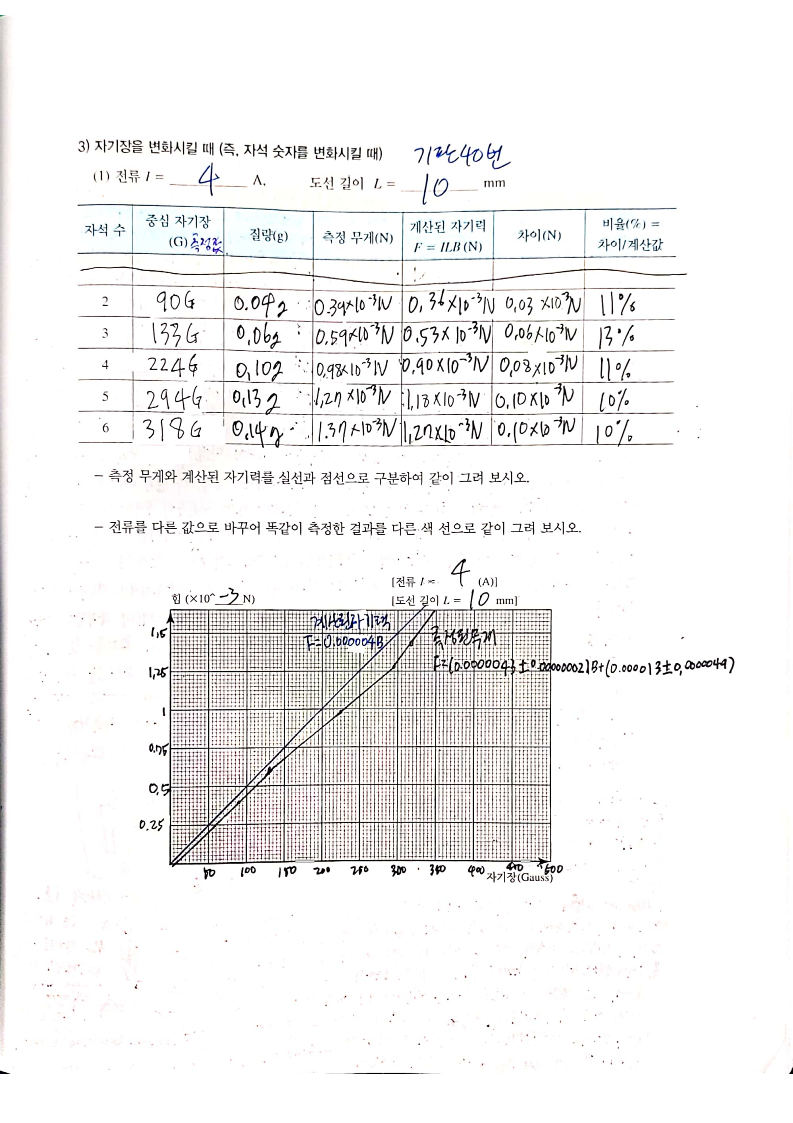 3) 자기장을 변화시킬 때 (즉, 자석 숫자를 변화시킬 때) 기판40번
(1) 전류 I = 4 A, 도선 길이 L = 10 mm
자석 수 중심 자기장 (G) 측정값 질량(g) 측정 무게(N) 계산된 자기력 F = ILB (N) 차이(N) 비율(%) = 차이/계산값
2 90G 0.04g 0.39×10⁻³N 0.36×10⁻³N 0.03×10⁻³N 11%
3 133G 0.06g 0.59×10⁻³N 0.53×10⁻³N 0.06×10⁻³N 13%
4 224G 0.10g 0.98×10⁻³N 0.90×10⁻³N 0.08×10⁻³N 11%
5 294G 0.13g 1.27×10⁻³N 1.18×10⁻³N 0.10×10⁻³N 10%
6 318G 0.14g 1.37×10⁻³N 1.27×10⁻³N 0.10×10⁻³N 10%
- 측정 무게와 계산된 자기력를 실선과 점선으로 구분하여 같이 그려 보시오.
- 전류를 다른 값으로 바꾸어 똑같이 측정한 결과를 다른 색 선으로 같이 그려 보시오.
[전류 I = 4 (A)]
힘 (×10^-3 N) [도선 길이 L = 10 mm]
계산된자기력
F=0.000004B
측정된무게
F=(0.0000043±0.00000002)B+(0.000013±0.0000044)
1.5
1.25
1
0.75
0.5
0.25
50 100 150 200 250 300 350 400 450 500
자기장(Gauss)